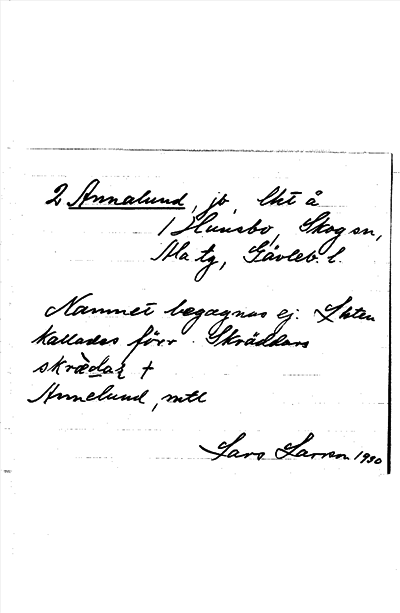 2 Annalund, jb lht å
1 Hunsbo, Skog sn,
Ala tg, Gävleb. l.
Namnet begagnas ej. Lhten
kallades förr Skräddars
skrædaʂ +
Annelund, mtl
Lars Larson 1930